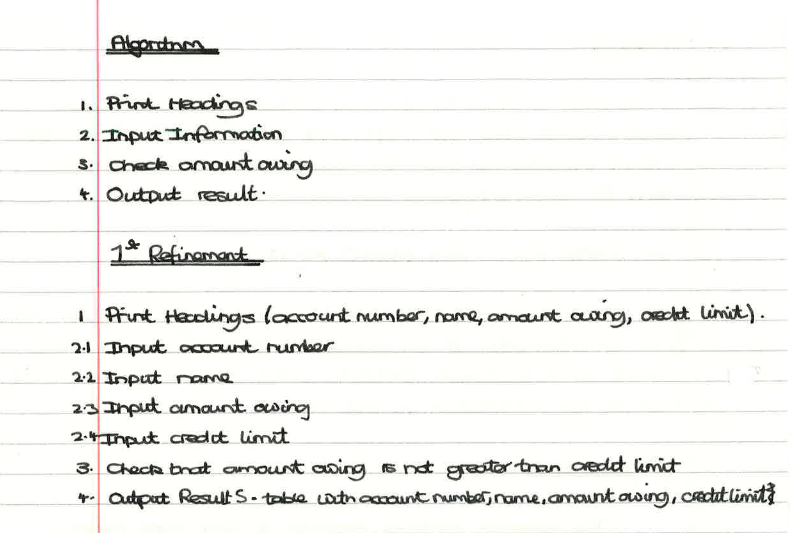 Algorithm
1. Print Headings
2. Input Information
3. Check amount owing
4. Output result.
1st Refinement
1 Print Headings (account number, name, amount owing, credit limit).
2.1 Input account number
2.2 Input name
2.3 Input amount owing
2.4 Input credit limit
3. Check that amount owing is not greater than credit limit
4. Output Results - table with account number, name, amount owing, credit limit}